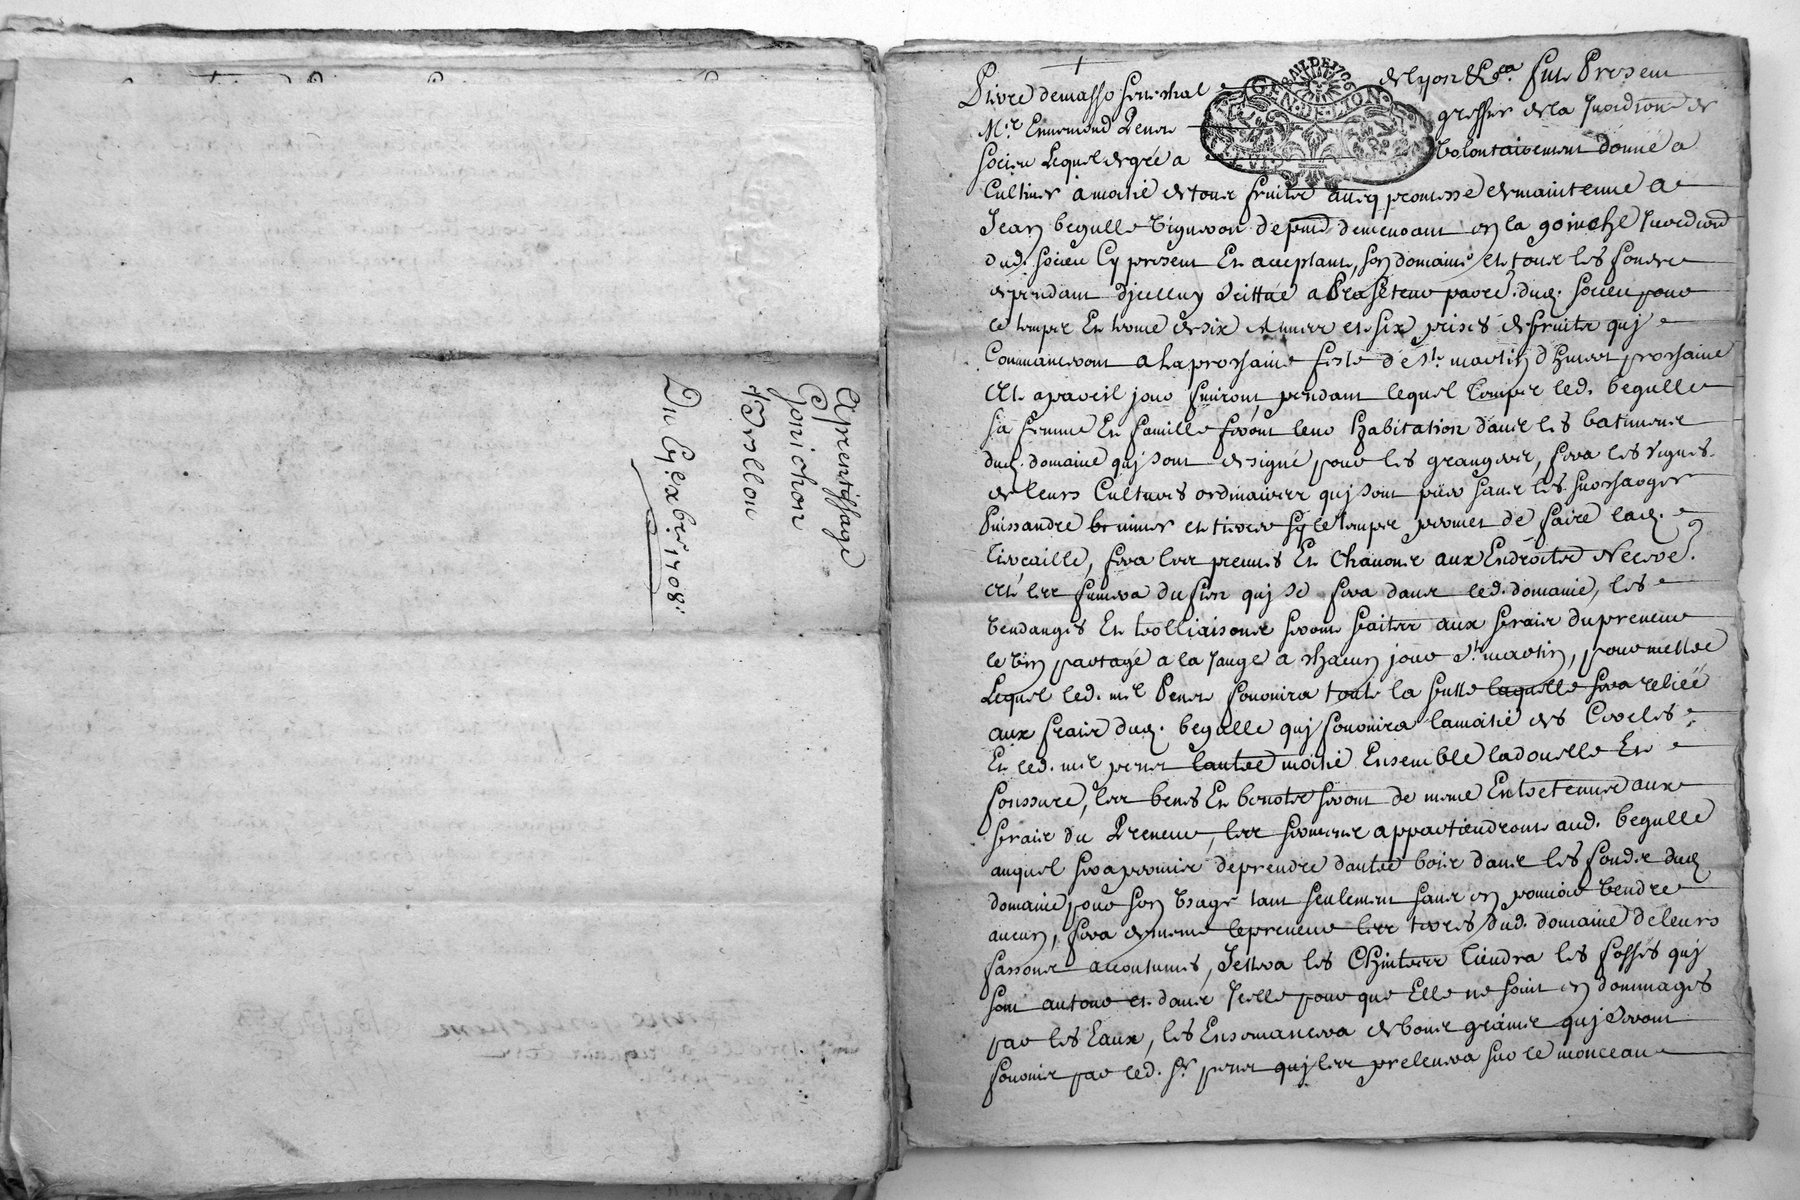 Aprentissage
Gonichon
Du 6.e xbre 1708.
Pierre demasso senechal de lyon &c.a fut Present
M.re Ennemond Perier greffier de la Juridion de
socieu Lequel de gré a volontairement donné a
Cultiver a moitié de tous fruits avec promesse de maintenue a
Jean begulle vigneron depuis demeurant en la Juridion
dud. socieu Cy present Et acceptant, son domaine et tous les fonds
dependant d'jcelluy scittué a parr. dud. socieu pour
le temps Et terme de six années et six prises de fruits quj
Commanceront a la prochaine feste de St. martin d'hiver prochaine
Et a pareil jour finiront, pendant lequel temps led. begulle
sa femme Et famille feront leur habitation dans les batiments
dud. domaine quj sont designé pour les grangers, fera les vignes
de leurs Cultures ordinaires quj sont
promet de faire lad.
Et les fumera du fien quj se fera dans led. domaine, les
vendanges Et seront faites aux fraix du preneur
le vin partagé a la Jauge a chacun jour St. martin, pour mettre
Lequel led. m.re Perier fournira toute la futte laquelle sera reliée
aux fraix dud. begulle quj fournira la moitié des Cercles
Et led. m.re perier l'autre moitié Ensemble la douelle Et
fonssure, les benes Et benots seront de meme Entretenus aux
fraix du Preneur, les appartiendront aud. begulle
auquel sera permis de prendre d'autre bois dans les fonds dud.
domaine pour son Usage tant seulement sans en pouvoir vendre
aucun, fera de meme le preneur les terres dud. domaine de leurs
fassons accoutumés, tiendra les fossés quj
sont autour et dans Icelle pour que Elle ne soint en dommages
par les Eaux, les Ensemancera de bons grains quj seront
fournis par led. Sr. perier quj les prelevera sur le monceau